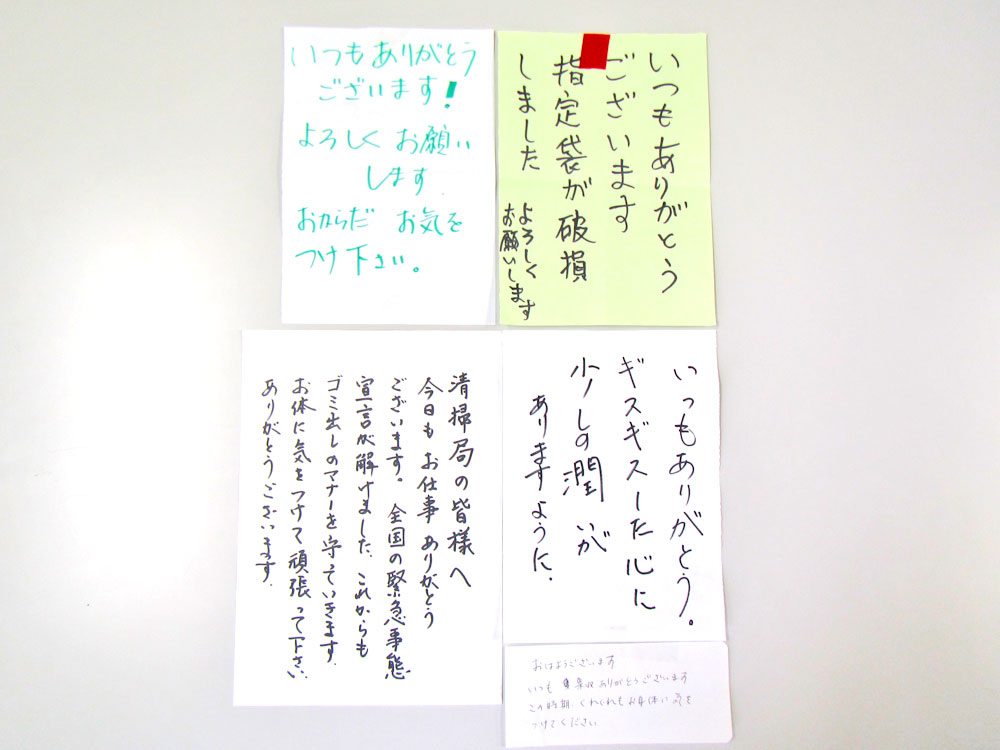 いつもありがとう
ございます!
よろしくお願い
します
おからだ お気を
つけ下さい。
いつもありがとう
ございます
指定袋が破損
しました
よろしく
お願いします
清掃局の皆様へ
今日もお仕事ありがとう
ございます。全国の緊急事態
宣言が解けました、これからも
ゴミ出しのマナーを守っていきます.
お体に気をつけて頑張って下さい.
ありがとうございます.
いつもありがとう。
ギスギスした心に
少しの潤いが
ありますように.
おはようございます
いつも 集収ありがとうございます
この時期、くれぐれもお身体に気を
つけてください.